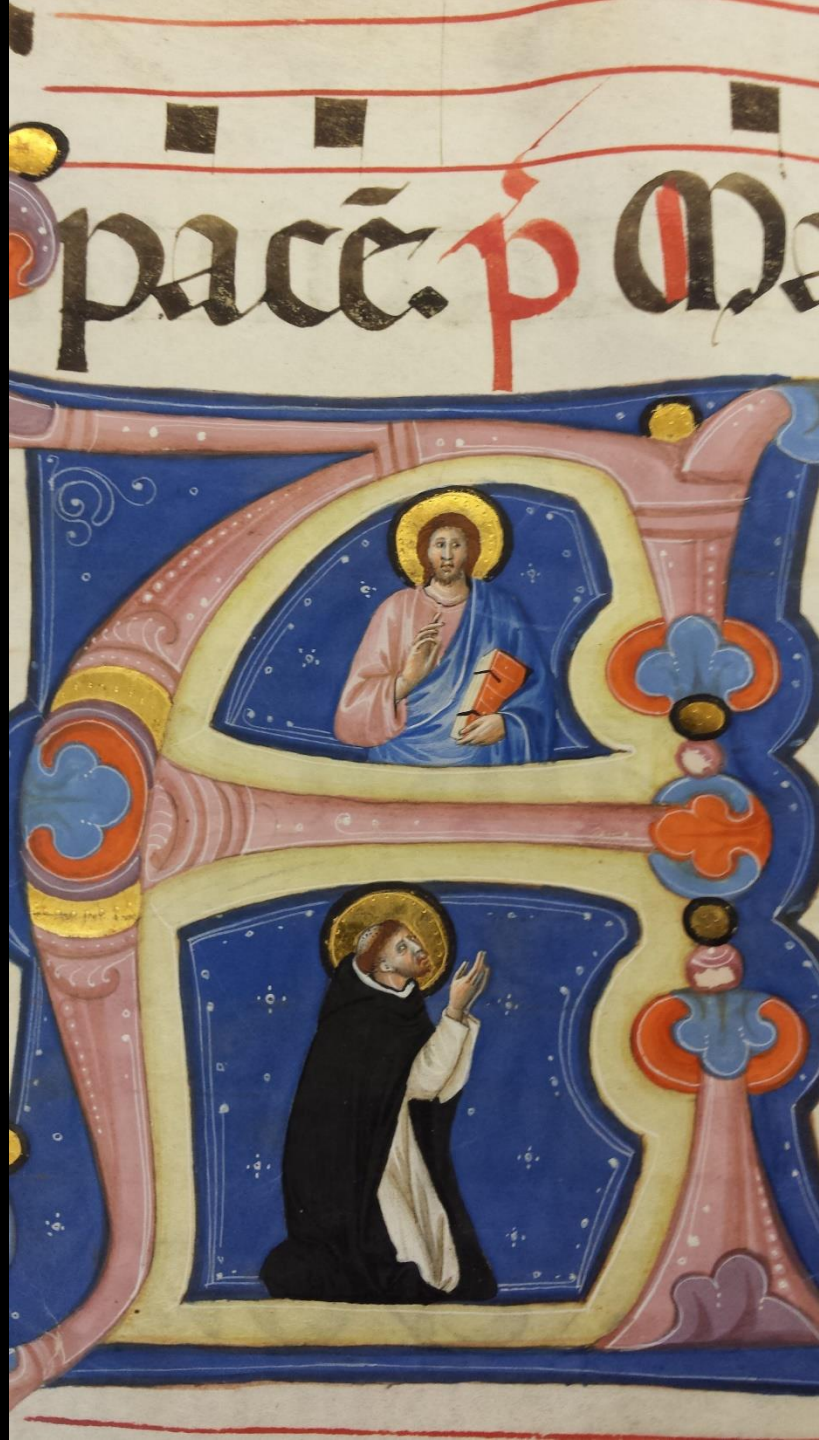 pacē. p̄ Ma